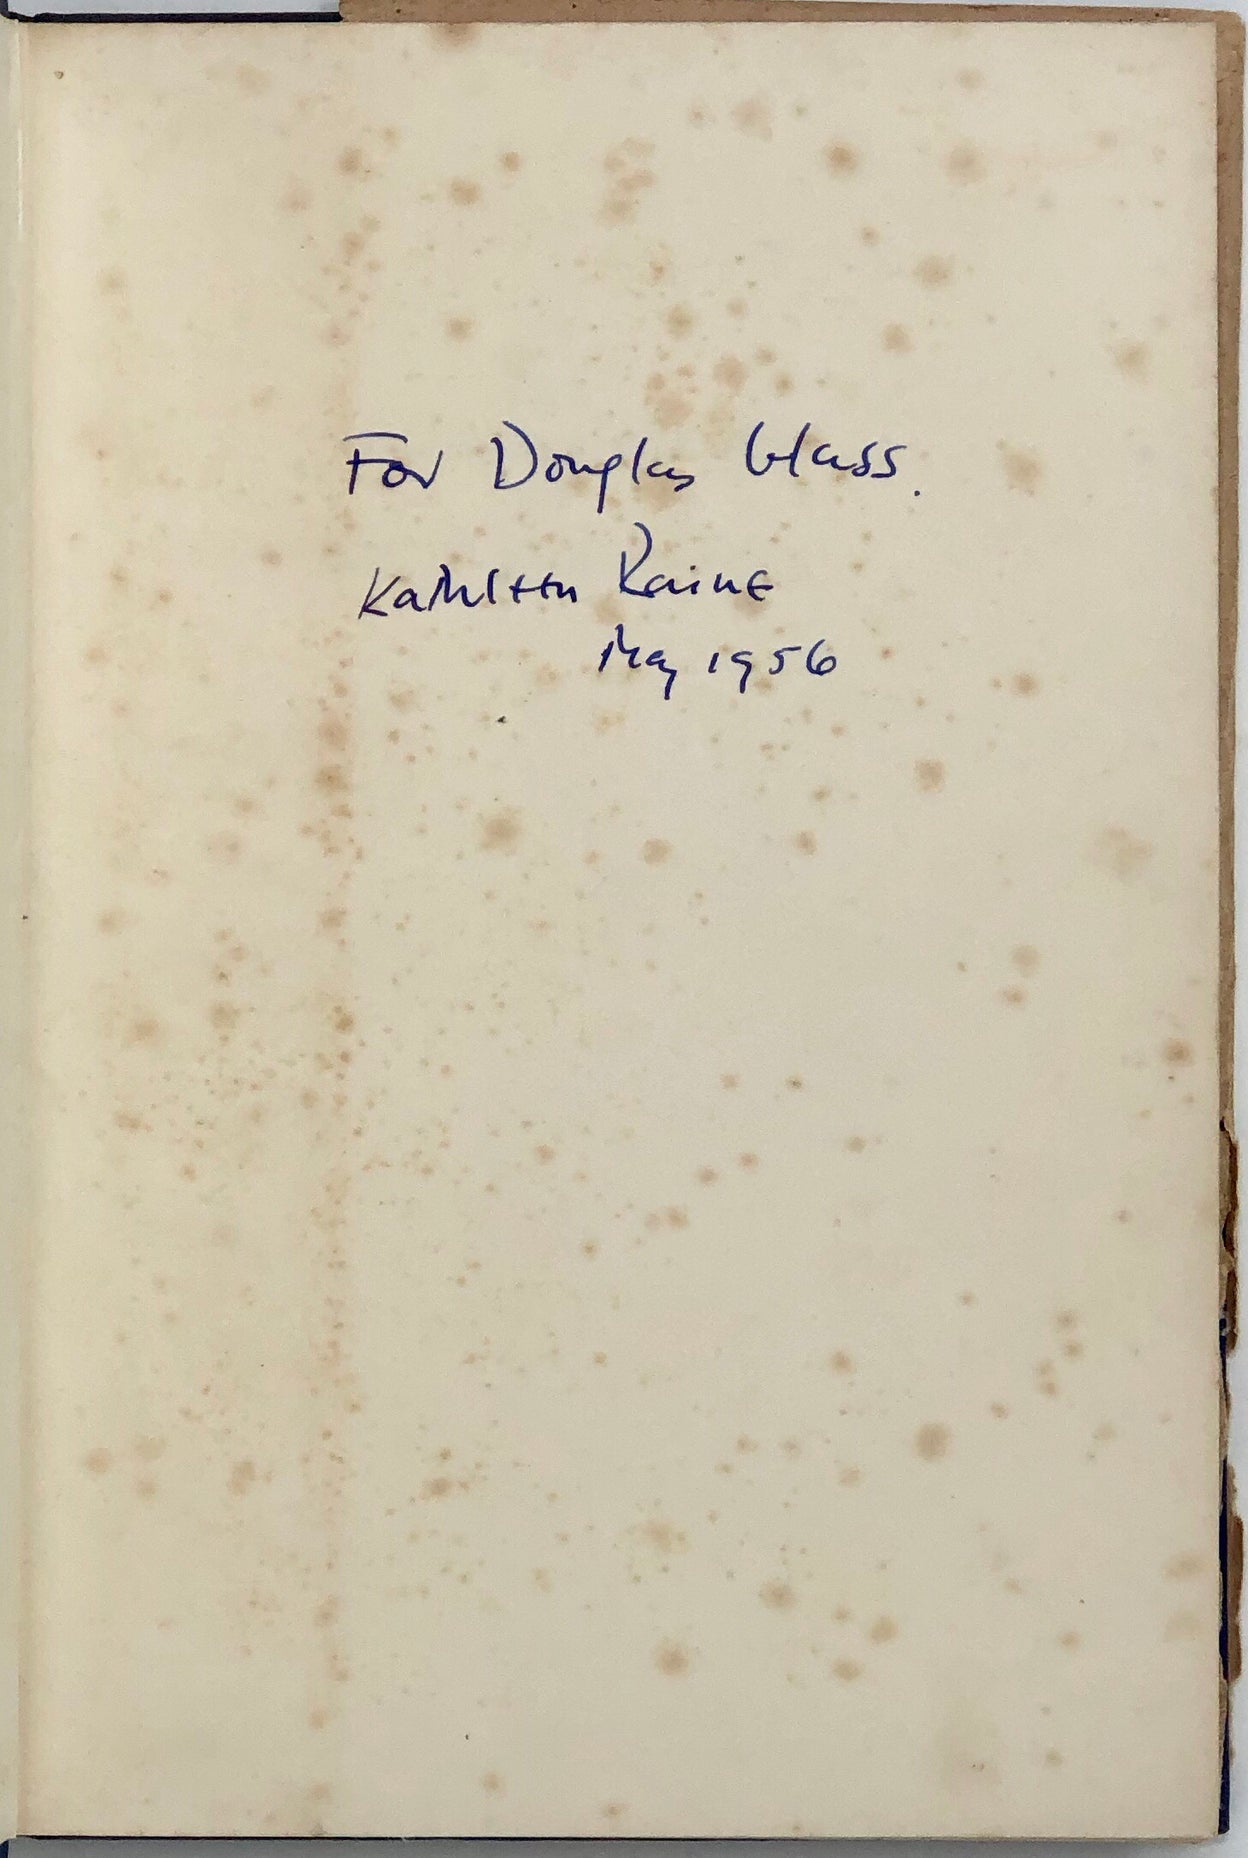 For Douglas Glass.
Kathleen Raine
May 1956